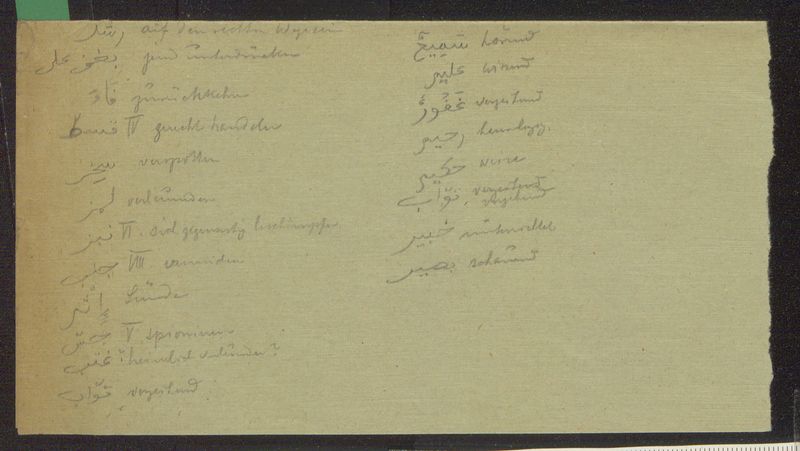 رشد auf dem rechten Weg sein
بغى على jem unterdrücken
فاءَ zurückkehren
قسط IV gerecht handeln
سخر verspotten
لمز verleumden
نبز VI. sich gegenseitig beschimpfen
جنب VIII vermeiden
إثم Sünde
جسّ V spionieren
غتب heimlich verleumden?
توّاب verzeihend
سَمِيعٌ hörend
عليم wissend
غَفُورٌ verzeihend
رحيم barmherzig
حكيم weise
توّاب verzeihend
خبير unterrichtet
بصير schauend